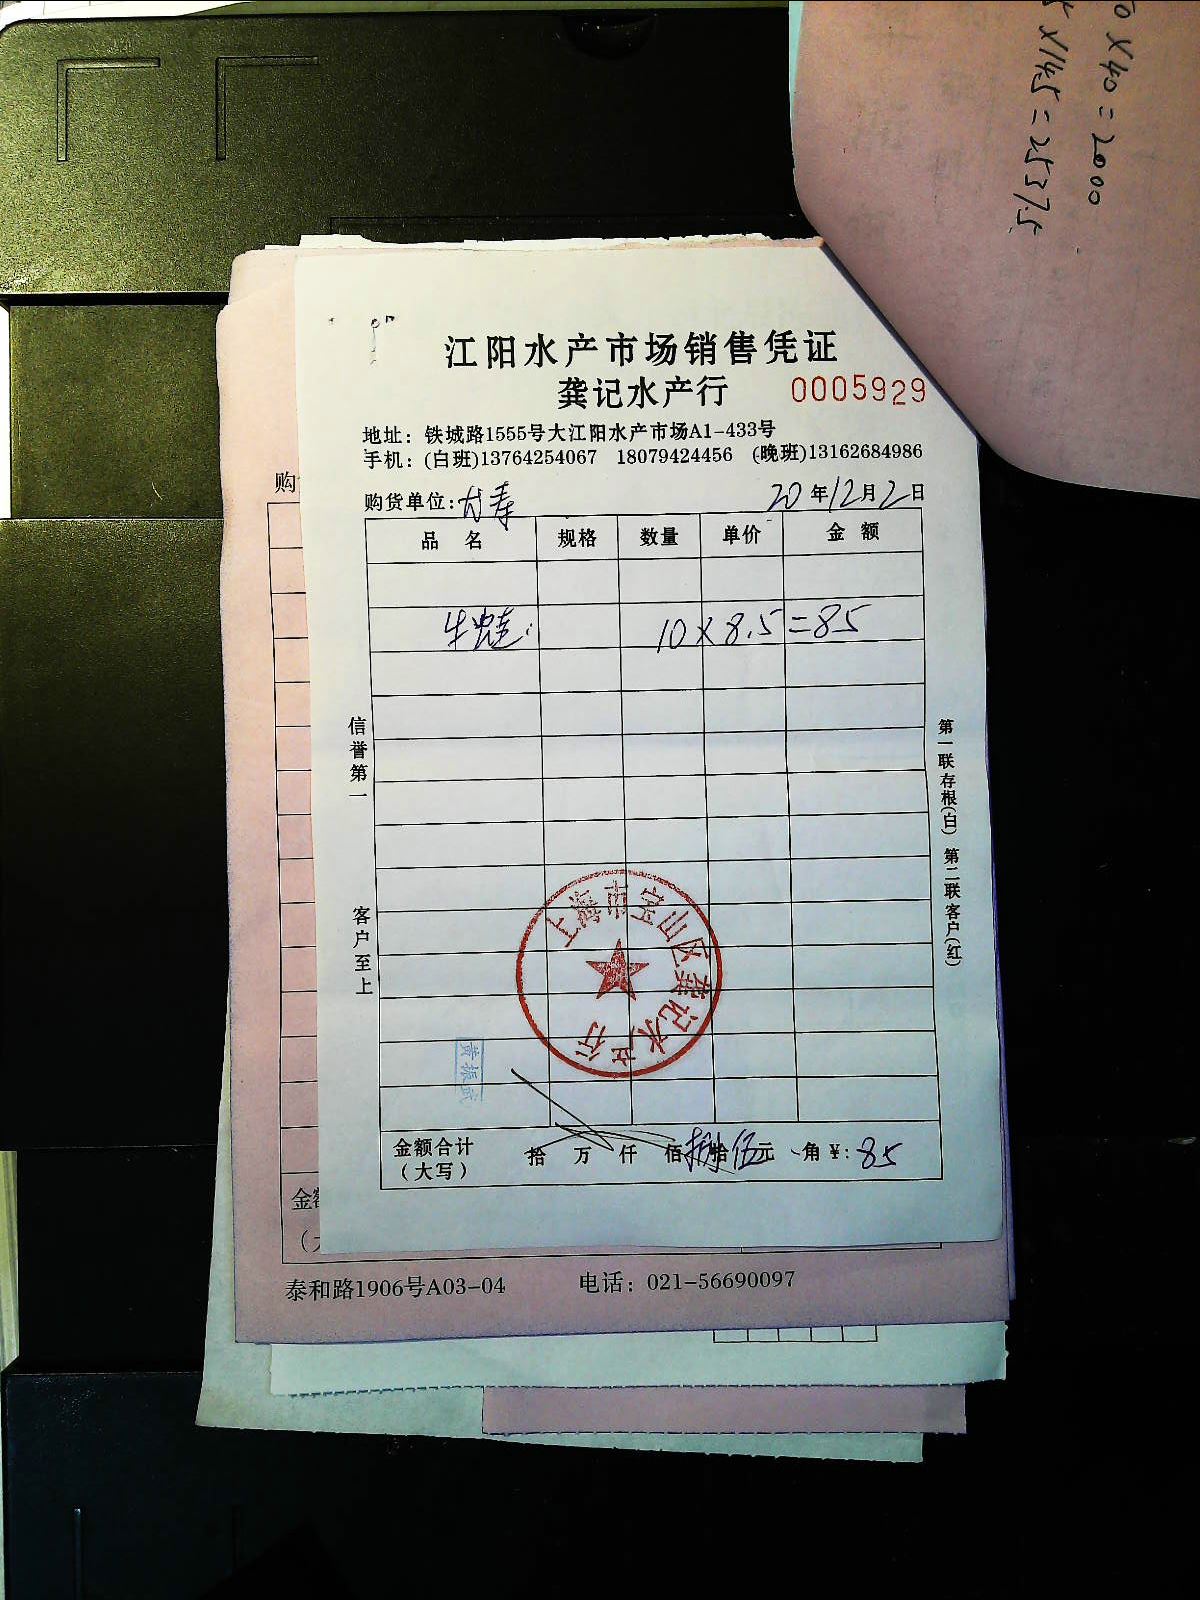 0×40=2000
5×145=2537.5
江阳水产市场销售凭证
龚记水产行 0005929
地址：铁城路1555号大江阳水产市场A1-433号
手机：(白班)13764254067 18079424456 (晚班)13162684986
购
购货单位: 20年12月2日
品 名 规格 数量 单价 金 额
牛蛙 10×8.5=85
信誉第一
客户至上
第一联存根(白) 第二联客户(红)
上海市宝山区龚记水产行
黄振武
金额合计
（大写）
拾 万 仟 佰 捌拾伍元 角 ¥: 85
泰和路1906号A03-04 电话：021-56690097